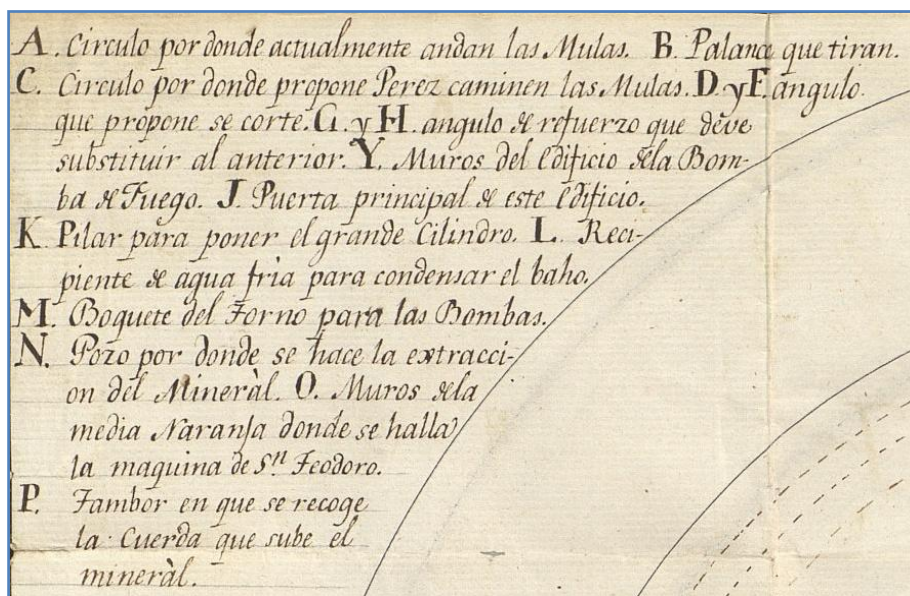 A. Circulo por donde actualmente andan las Mulas. B. Palanca que tiran.
C. Circulo por donde propone Perez caminen las Mulas. D. y F. angulo
que propone se corte. G. y H. angulo de refuerzo que deve
substituir al anterior. Y. Muros del Edificio dela Bom-
ba de Fuego. J. Puerta principal de este Edificio.
K. Pilar para poner el grande Cilindro. L. Reci-
piente de agua fria para condensar el baho.
M. Boquete del Torno para las Bombas.
N. Pozo por donde se hace la extracci-
on del Mineràl. O. Muros dela
media Naranja donde se halla
la maquina de Sn. Teodoro.
P. Tambor en que se recoge
la Cuerda que sube el
mineràl.